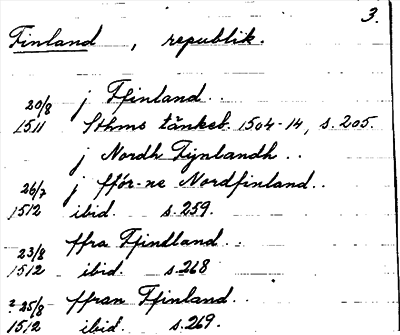 3.
Finland, republik.
20/8 j Ffinland..
1511 Sthms tänkeb. 1504-14, s. 205.
j Nordh Fijnlandh..
26/7 j ffór-ne Nordfinland..
1512 ibid. s. 259.
23/8 ffra Ffindland..
1512 ibid. s. 268
? 25/8 ffran Ffinland..
1512 ibid. s. 269.